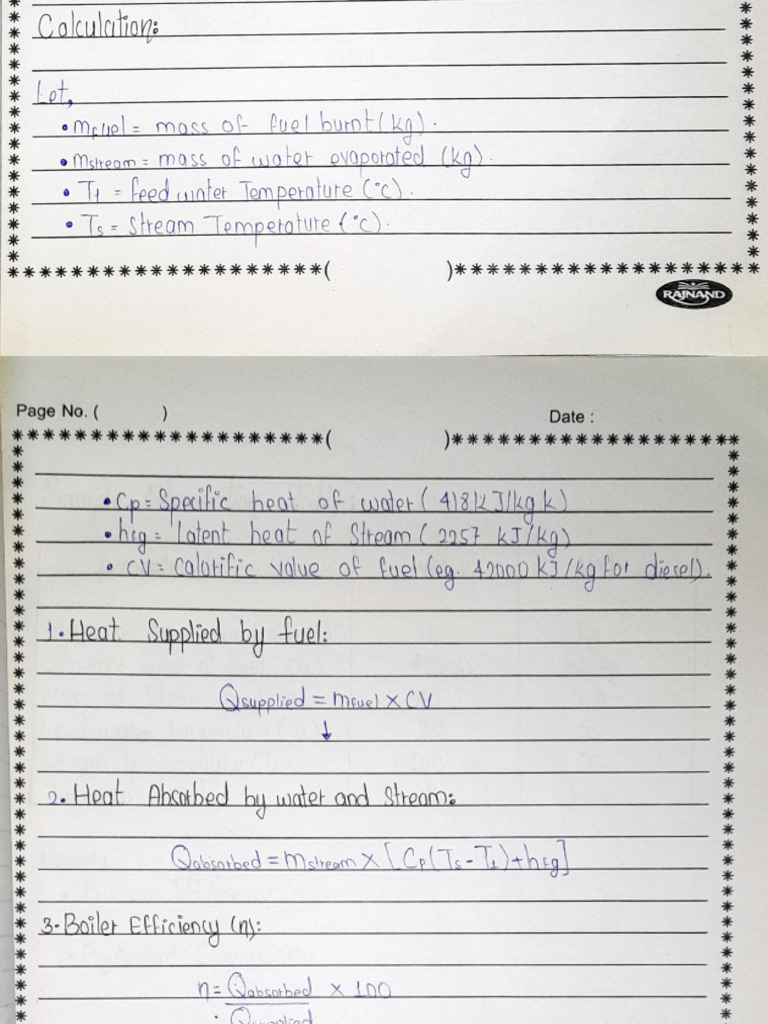 Calculation:
Let,
• mfuel = mass of fuel burnt (kg).
• mstream = mass of water evaporated (kg).
• Tf = feed water Temperature (°c).
• Ts = Stream Temperature (°c).
RAJNAND
Page No. ( )
Date :
• Cp = Specific heat of water ( 418 kJ/kg k)
• hfg = Latent heat of Stream ( 2257 kJ/kg)
• CV = Calorific value of fuel (eg. 42000 kJ/kg for diesel).
1. Heat Supplied by fuel:
Qsupplied = mfuel × CV
↓
2. Heat Absorbed by water and Stream:
Qabsorbed = mstream × [Cp(Ts - Tf) + hfg]
3- Boiler Efficiency (η):
η = Qabsorbed × 100
Qsupplied